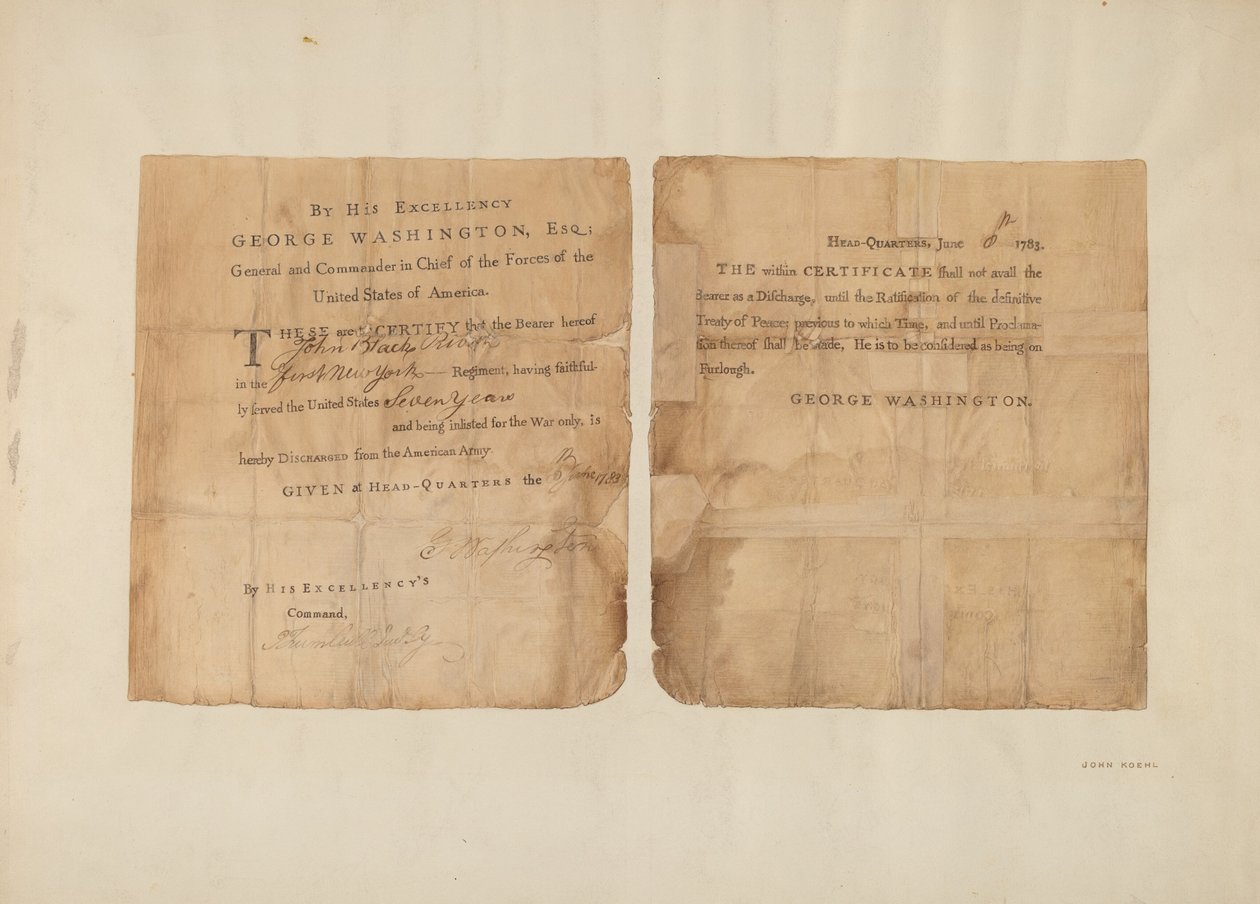 By His Excellency
GEORGE WASHINGTON, Esq;
General and Commander in Chief of the Forces of the
United States of America.
THESE are to CERTIFY that the Bearer hereof
John Black
in the First New York Regiment, having faithful-
ly ſerved the United States Seven Years
and being inliſted for the War only, is
hereby Discharged from the American Army.
GIVEN at Head-Quarters the 8th June 1783
G Washington
By His Excellency's
Command,
Head-Quarters, June 8th 1783.
THE within CERTIFICATE ſhall not avail the
Bearer as a Diſcharge, until the Ratification of the definitive
Treaty of Peace; previous to which Time, and until Proclama-
tion thereof ſhall be made, He is to be conſidered as being on
Furlough.
GEORGE WASHINGTON.
JOHN KOEHL